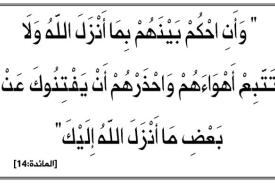 " وَأَنِ احْكُمْ بَيْنَهُمْ بِمَا أَنْزَلَ اللَّهُ وَلَا
تَتَّبِعْ أَهْوَاءَهُمْ وَاحْذَرْهُمْ أَنْ يَفْتِنُوكَ عَنْ
بَعْضِ مَا أَنْزَلَ اللَّهُ إِلَيْكَ"
[المائدة:14]